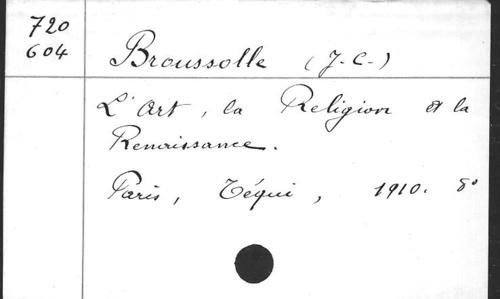 720
604
Broussolle (J.-C.-)
L'Art, la Religion et la
Renaissance.
Paris, Téqui, 1910. 8°